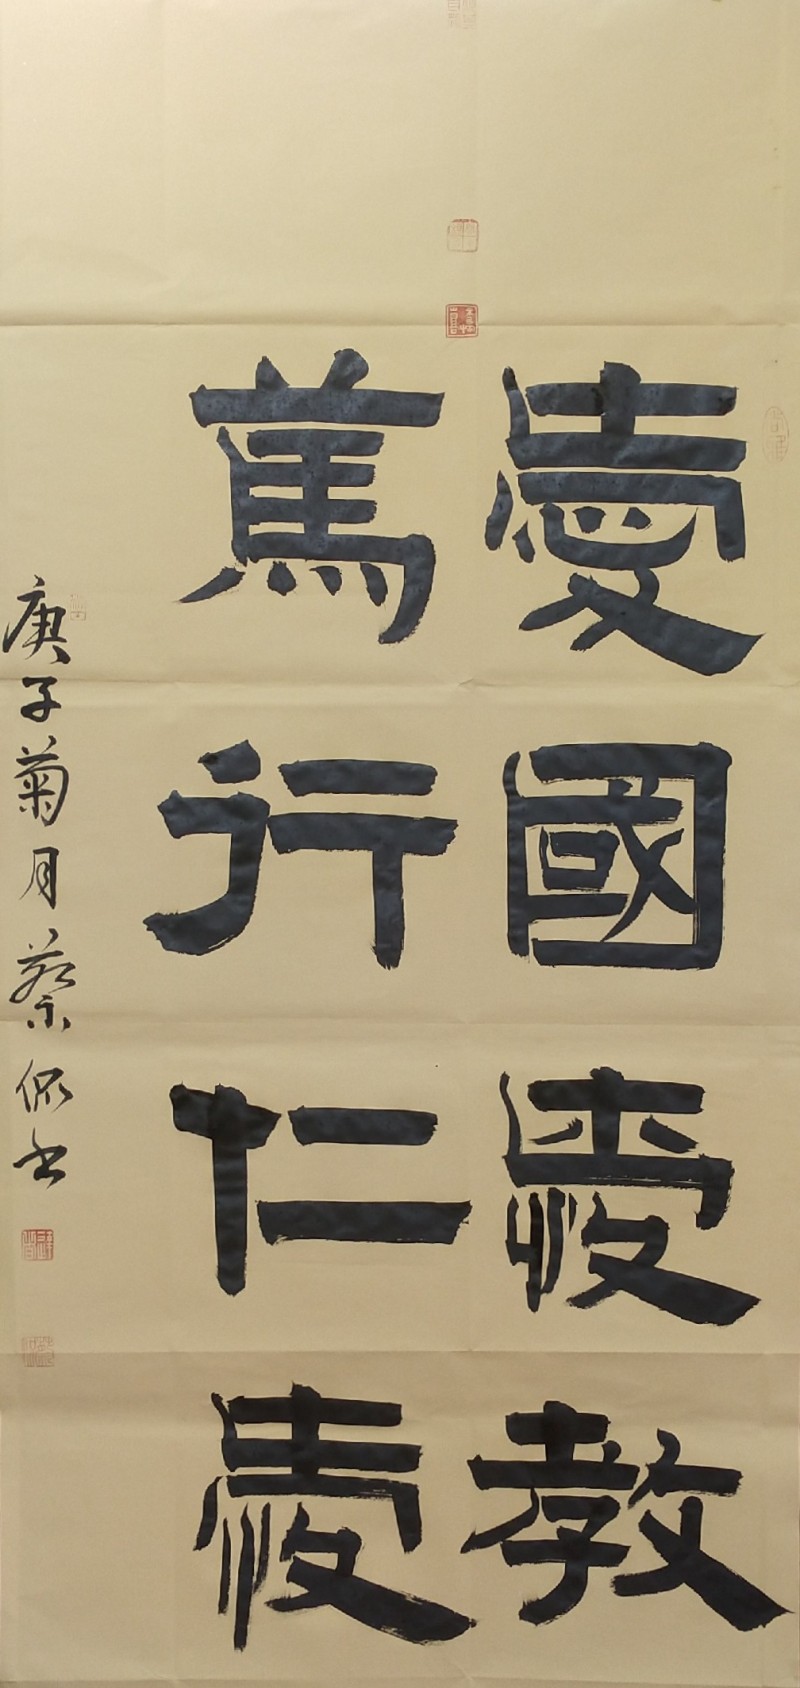 愛國愛教
篤行仁愛
庚子菊月蔡侃书